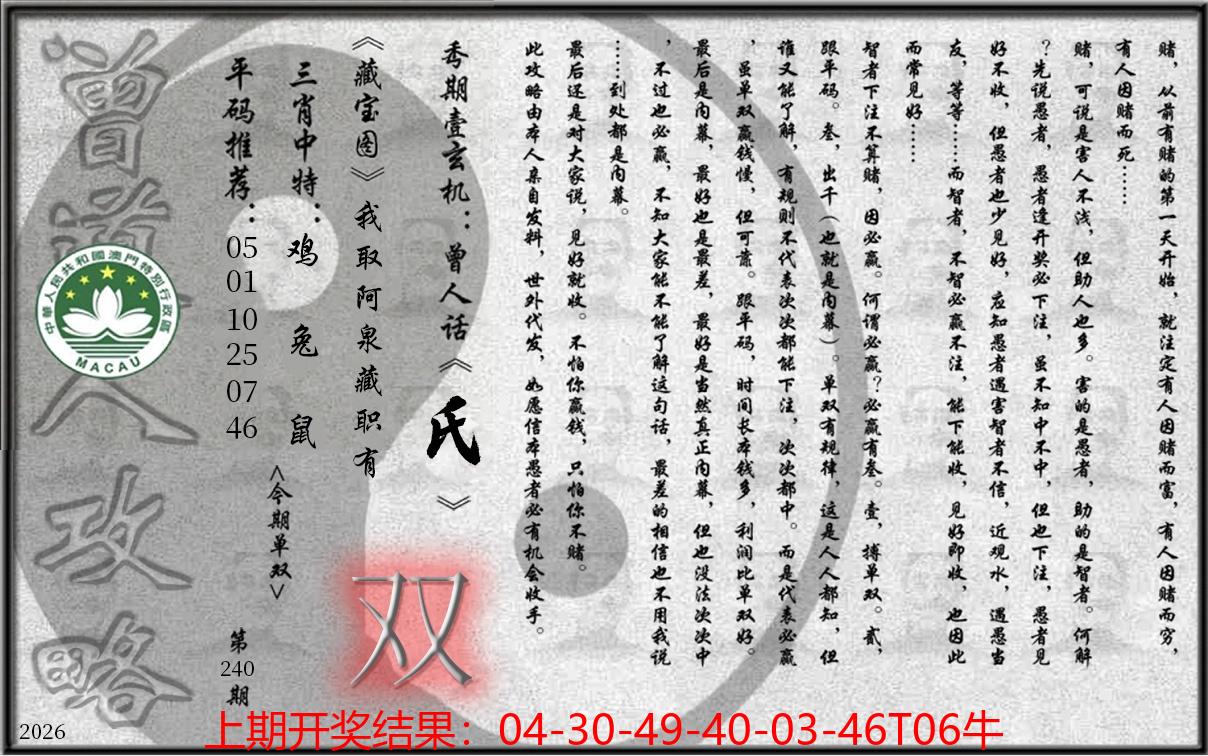 赌，从前有赌的第一天开始，就注定有人因赌而富，有人因赌而穷，
有人因赌而死……
赌，可说是害人不浅，但助人也多。害的是愚者，助的是智者。何解
？先说愚者，愚者逢开奖必下注，虽不知中不中，但也下注，愚者见
好不收，但愚者也少见好，应知愚者遇害智者不信，近观水，遇愚当
友，等等……而智者，不智必赢不注，能下能收，见好即收，也因此
而常见好……
智者下注不算赌，因必赢。何谓必赢？必赢有叁。壹，搏单双。贰，
跟平码。叁，出千（也就是内幕）。单双有规律，这是人人都知，但
谁又能了解，有规则不代表次次都能下注，次次都中。而是代表必赢
，虽单双赢钱慢，但可靠。跟平码，时间长本钱多，利润比单双好。
最后是内幕，最好也是最差，最好是当然真正内幕，但也没法次次中
，不过也必赢，不知大家能不能了解这句话，最差的相信也不用我说
……到处都是内幕。
最后还是对大家说，见好就收。不怕你赢钱，只怕你不赌。
此攻略由本人亲自发料，世外代发，如愿信本愚者必有机会收手。
秀期壹玄机：曾人话《氏》
《藏宝图》我取阿泉藏职有
双
三肖中特：鸡兔鼠
<今期单双>
平码推荐：05 01 10 25 07 46
第240期
曾道人攻略
中華人民共和國澳門特別行政區
MACAU
2026
上期开奖结果：04-30-49-40-03-46T06牛